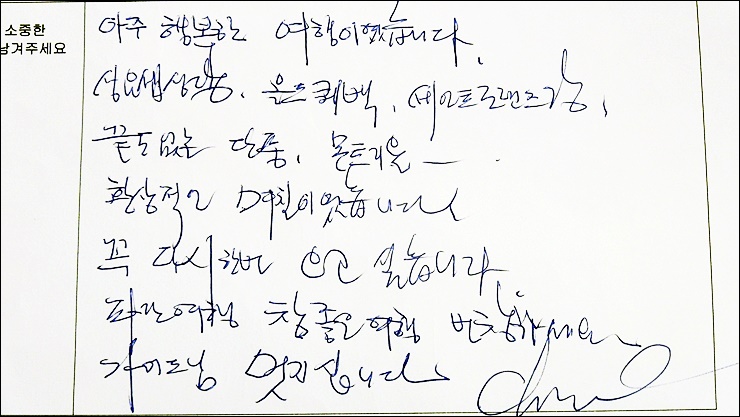 소중한
남겨주세요
아주 행복한 여행이었습니다.
성요셉성당, 올드퀘백, 세인트로렌스강,
끝도 없는 단풍, 몬트리올 —
환상적인 며칠이었습니다
꼭 다시한번 오고 싶습니다.
파란여행 참좋은여행 번창하세요
가이드님 멋지십니다